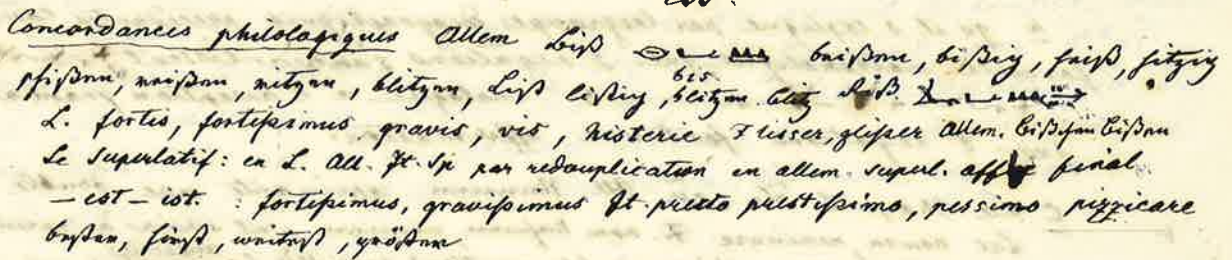 Concordances philologiques Allem Biß beißen, bißig, heiß, hitzig
pfißen, reißen, ritzen, blitzen, List listig, blitzen blitz
bis
L. fortis, fortißimus gravis, vis, histerie glißer Allem. Bißchen Bißen
Le Superlatif: en L. All. It. Sp par redouplication en allem. superl. final
– est – ist. : fortißimus, gravißimus It. presto prestißimo, pessimo pizzicare
besten, weitest, größten